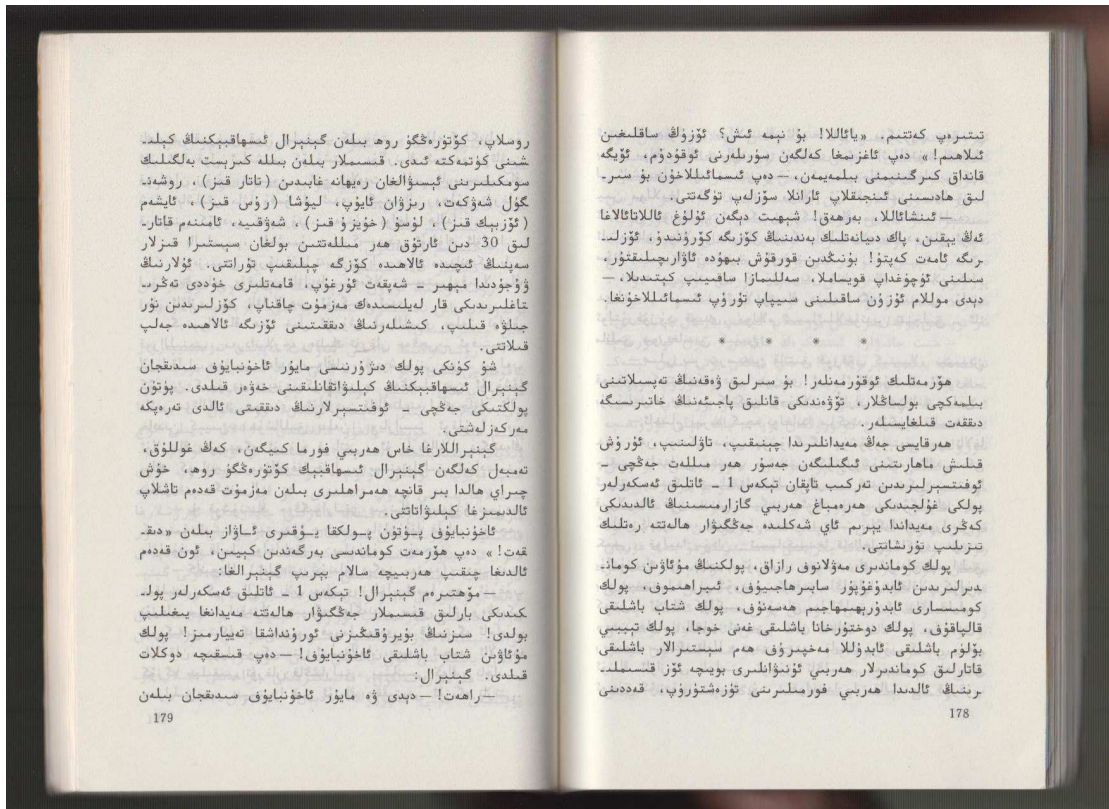 تىتىرەپ كەتتىم. «يائاللا! بۇ نېمە ئىش؟ ئۆزۈڭ ساقلىغىن
ئىلاھىم!» دەپ ئاغزىمغا كەلگەن سۈرىلەرنى ئوقۇدۇم، ئۆيگە
قانداق كىرگىنىمنى بىلمەيمەن، — دەپ ئىسمائىللاخۇن بۇ سىر-
لىق ھادىسىنى ئىنچىقىلاپ ئارانلا سۆزلەپ تۈگەتتى.
— ئىنشائاللا، بەرھەق! شېھىت دېگەن ئۇلۇغ ئاللاتائالاغا
ئەڭ يېقىن، پاك دىيانەتلىك بەندىنىڭ كۆزىگە كۆرۈنىدۇ، ئۆزلى-
رىگە ئامەت كەپتۇ! بۇنىڭدىن قورقۇش بىھۇدە ئاۋارىچىلىقتۇر،
سىلىنى ئۇچۇغداپ قويساملا، سەللىمازا ساقىيىپ كېتىدىلا، —
دېدى موللام ئۇزۇن ساقىلىنى سىيپاپ تۇرۇپ ئىسمائىللاخۇنغا.
* * * *
ھۆرمەتلىك ئوقۇرمەنلەر! بۇ سىرلىق ۋەقەنىڭ تەپسىلاتىنى
بىلمەكچى بولساڭلار، تۆۋەندىكى قانلىق پاجىئەنىڭ خاتىرىسىگە
دىققەت قىلغايسىلەر.
ھەرقايسى جەڭ مەيدانلىرىدا چېنىقىپ، تاۋلىنىپ، ئۇرۇش
قىلىش ماھارىتىنى ئىگىلىگەن جەسۇر ھەر مىللەت جەڭچى -
ئوفىتسېرلىرىدىن تەركىب تاپقان تېكەس 1 - ئاتلىق ئەسكەرلەر
پولكى غۇلجىدىكى ھەرەمباغ ھەربىي گازارمىسىنىڭ ئالدىدىكى
كەڭرى مەيداندا يېرىم ئاي شەكلىدە جەڭگىۋار ھالەتتە رەتلىك
تىزىلىپ تۇرىشاتتى.
پولك كوماندىرى مەۋلانوف رازاق، پولكنىڭ مۇئاۋىن كومان-
دىرلىرىدىن ئابدۇغۇپۇر سابىرھاجىيوف، ئىبراھىموف، پولك
كومىسسارى ئابدۇرېھىمھاجىم ھەسەنوف، پولك شتاب باشلىقى
قالپاقوف، پولك دوختۇرخانا باشلىقى غەنى خوجا، پولك تېببىي
بۆلۈم باشلىقى ئابدۇللا مەخپىروف ھەم سېستىرالار باشلىقى
قاتارلىق كوماندىرلار ھەربىي ئۇنىۋانلىرى بويىچە ئۆز قىسىملى-
رىنىڭ ئالدىدا ھەربىي فورمىلىرىنى تۈزەشتۈرۈپ، قەددىنى
178
روسلاپ، كۆتۈرەڭگۈ روھ بىلەن گېنېرال ئىسھاقبېكنىڭ كېلى-
شىنى كۈتمەكتە ئىدى. قىسىملار بىلەن بىللە كىرېست بەلگىلىك
سومكىلىرىنى ئېسىۋالغان رەيھانە غابىدىن (تاتار قىز)، روشەن-
گۈل شەۋكەت، رىزۋان ئايۇپ، ليۇشا (رۇس قىز)، ئايشەم
(ئۆزبېك قىز)، لۇسۇ (خۇيزۇ قىز)، شەۋقىيە، ئامىنەم قاتار-
لىق 30 دىن ئارتۇق ھەر مىللەتتىن بولغان سېستىرا قىزلار
سەپنىڭ ئىچىدە ئالاھىدە كۆزگە چېلىقىپ تۇراتتى. ئۇلارنىڭ
ۋۇجۇدىدا مېھىر - شەپقەت ئۇرغۇپ، قامەتلىرى خۇددى تەڭرى-
تاغلىرىدىكى قار لەيلىسىدەك مەزمۇت چاقناپ، كۆزلىرىدىن نۇر
جىلۋە قىلىپ، كىشىلەرنىڭ دىققىتىنى ئۆزىگە ئالاھىدە جەلپ
قىلاتتى.
شۇ كۈنكى پولك دىژۇرنىسى مايۇر ئاخۇنبايۇف سىدىقجان
گېنېرال ئىسھاقبېكنىڭ كېلىۋاتقانلىقىنى خەۋەر قىلدى. پۈتۈن
پولكتىكى جەڭچى - ئوفىتسېرلارنىڭ دىققىتى ئالدى تەرەپكە
مەركەزلەشتى.
گېنېراللارغا خاس ھەربىي فورما كىيگەن، كەڭ غوللۇق،
تەمبەل كەلگەن گېنېرال ئىسھاقبېك كۆتۈرەڭگۈ روھ، خۇش
چىراي ھالدا بىر قانچە ھەمراھلىرى بىلەن مەزمۇت قەدەم تاشلاپ
ئالدىمىزغا كېلىۋاتاتتى.
ئاخۇنبايۇف پۈتۈن پولكقا يۇقىرى ئاۋاز بىلەن «دىق-
قەت!» دەپ ھۆرمەت كوماندىسى بەرگەندىن كېيىن، ئون قەدەم
ئالدىغا چىقىپ ھەربىيچە سالام بېرىپ گېنېرالغا:
— مۆھتىرەم گېنېرال! تېكەس 1 - ئاتلىق ئەسكەرلەر پول-
كىدىكى بارلىق قىسىملار جەڭگىۋار ھالەتتە مەيدانغا يىغىلىپ
بولدى! سىزنىڭ بۇيرۇقىڭىزنى ئورۇنداشقا تەييارمىز! پولك
مۇئاۋىن شتاب باشلىقى ئاخۇنبايۇف! — دەپ قىسقىچە دوكلات
قىلدى. گېنېرال:
— راھەت! — دېدى ۋە مايۇر ئاخۇنبايۇف سىدىقجان بىلەن
179